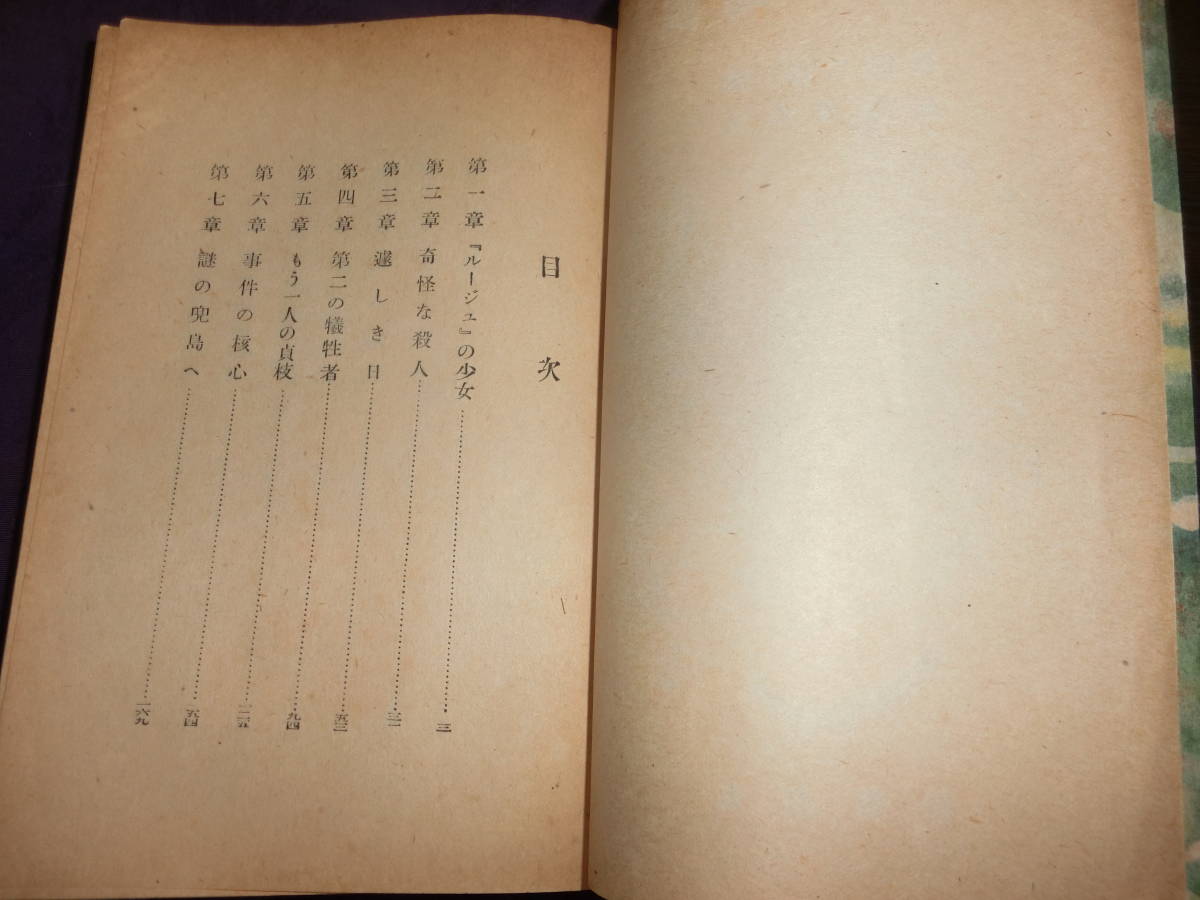 目次
第一章 『ルージュ』の少女……三
第二章 奇怪な殺人……三一
第三章 遽しき日……五三
第四章 第二の犠牲者……九四
第五章 もう一人の貞枝……一二五
第六章 事件の核心……一五四
第七章 謎の兜島へ……一六九